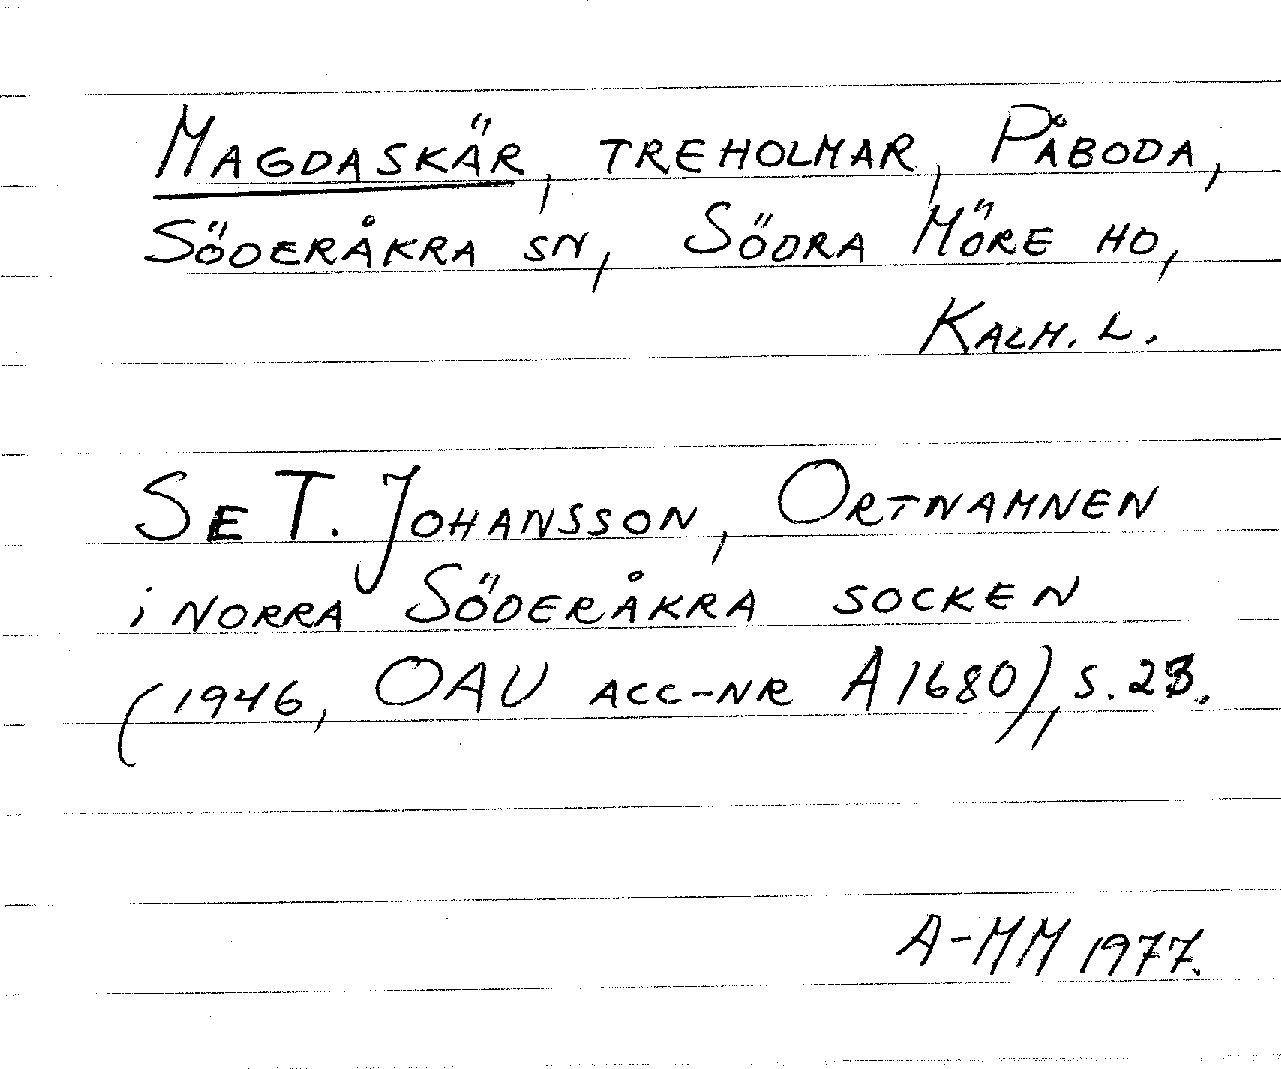 MAGDASKÄR, TREHOLMAR, PÅBODA,
SÖDERÅKRA SN, SÖDRA MÖRE HD,
KALM. L.
SE T. JOHANSSON, ORTNAMNEN
i NORRA SÖDERÅKRA SOCKEN
(1946, OAU ACC-NR A1680), S. 23.
A-MM 1977.